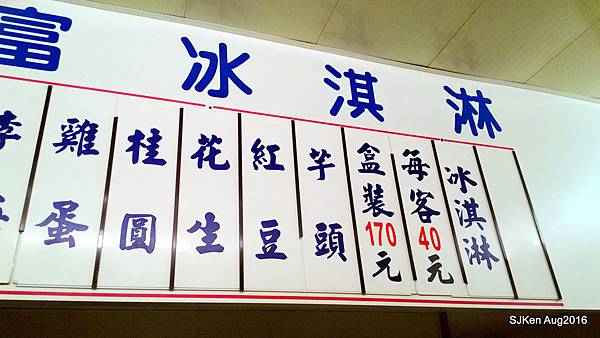 富冰淇淋
冰淇淋
每客40元
盒裝170元
芋頭
紅豆
花生
桂圓
雞蛋
SJKen Aug2016